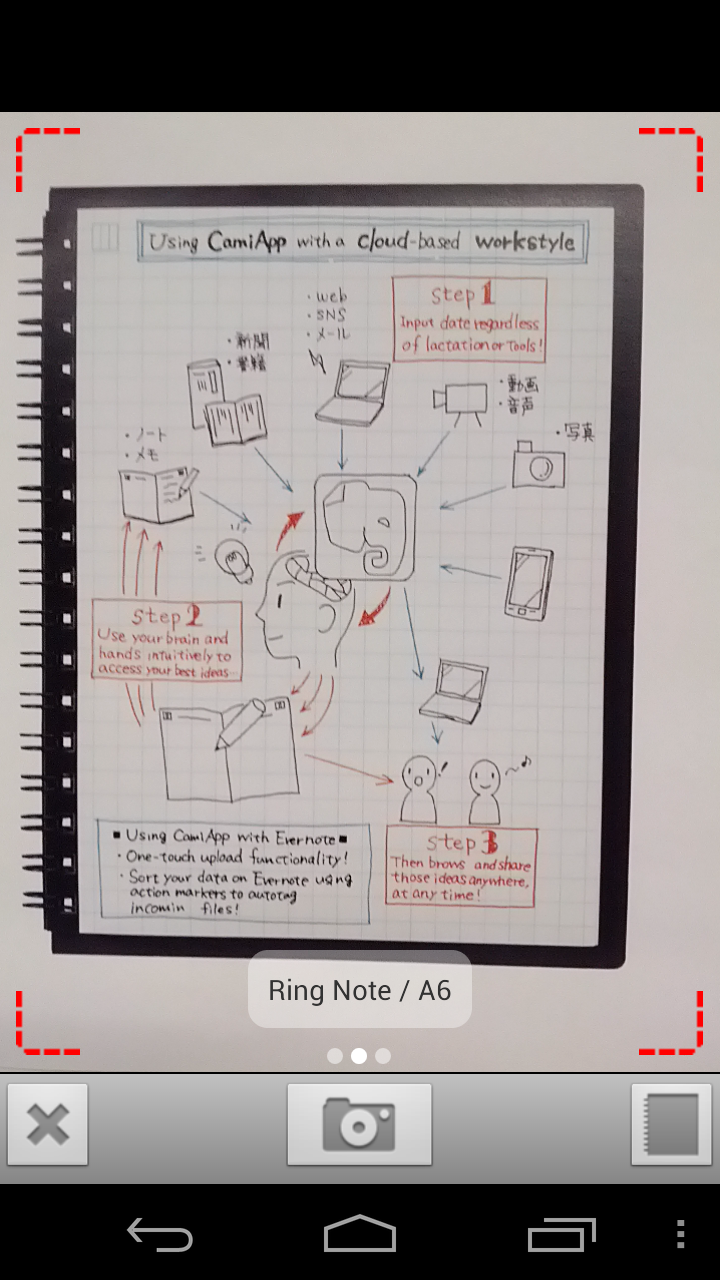 Using CamiApp with a cloud-based workstyle
Step 1
Input date regardless
of lactation or Tools!
・web
・SNS
・メール
・新聞
・書籍
・動画
・音声
・写真
・ノート
・メモ
Step 2
Use your brain and
hands intuitively to
access your best ideas
■ Using CamiApp with Evernote ■
・One-touch upload functionality!
・Sort your data on Evernote using
action markers to autotag
incomin files!
Step 3
Then brows and share
those ideas anywhere,
at any time!
Ring Note / A6